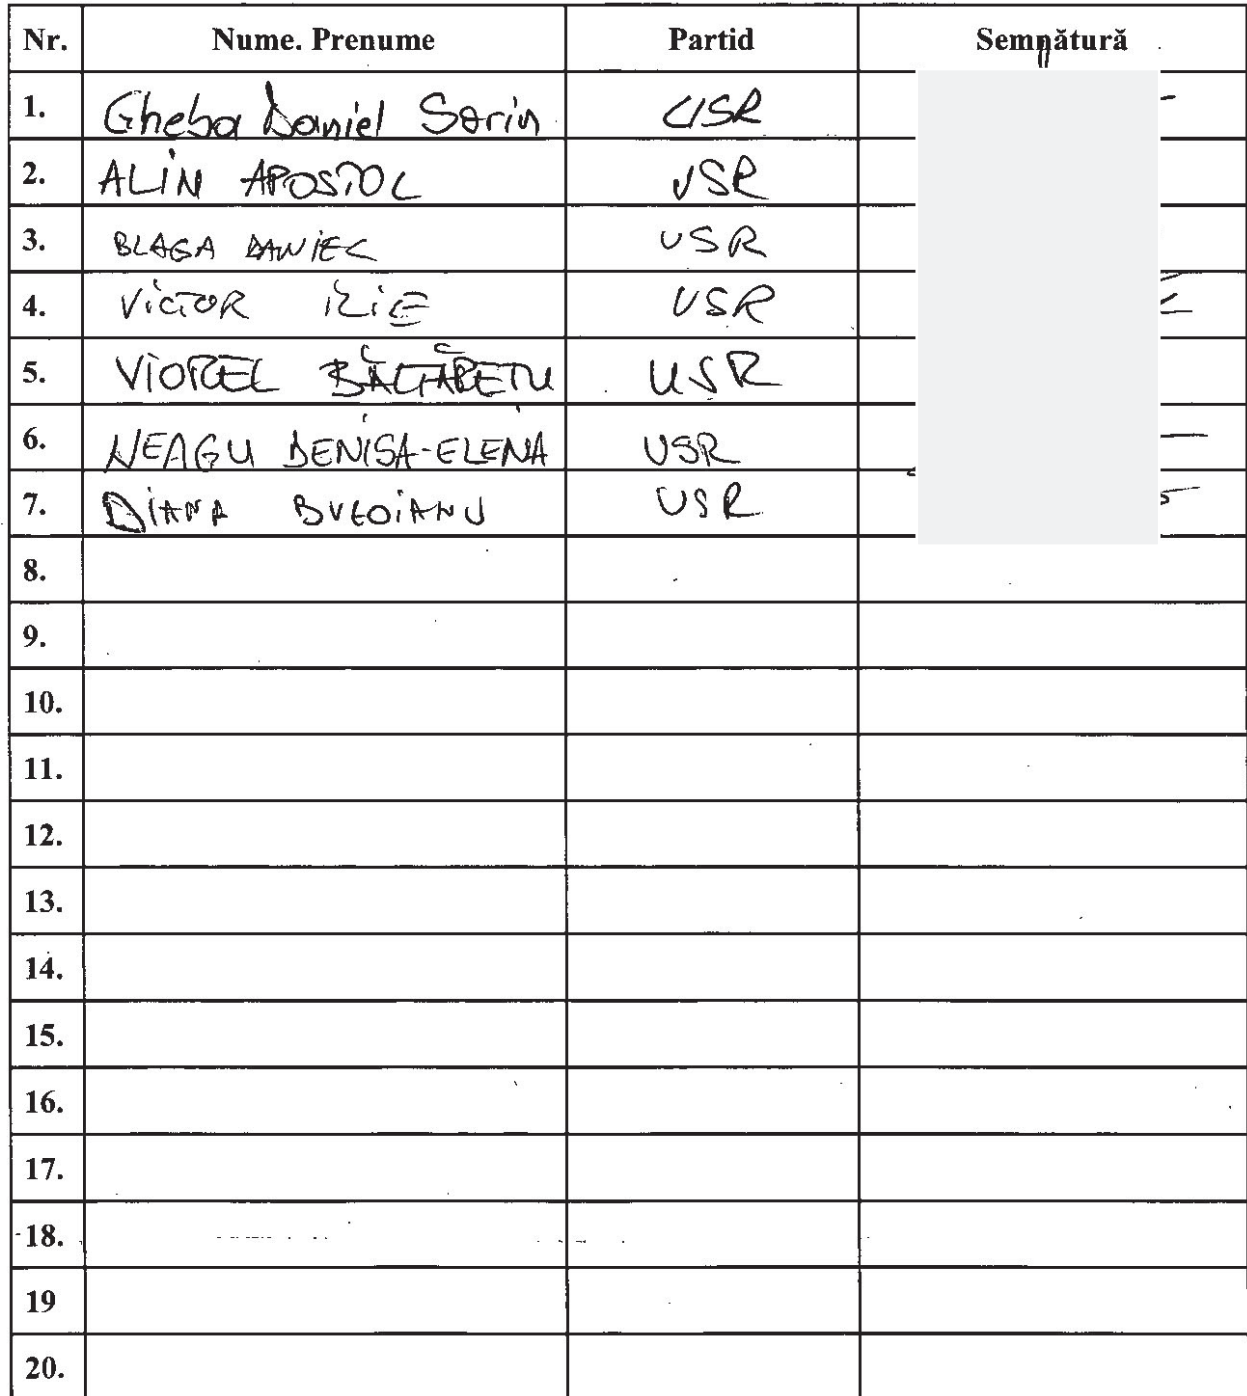 Nr. Nume. Prenume Partid Semnătură
1. Gheba Daniel Sorin USR
2. ALIN APOSTOL USR
3. BLAGA DANIEL USR
4. VICTOR ILIE USR
5. VIOREL BĂLTĂREȚU USR
6. NEAGU DENISA-ELENA USR
7. DIANA BUZOIANU USR
8.
9.
10.
11.
12.
13.
14.
15.
16.
17.
18.
19
20.